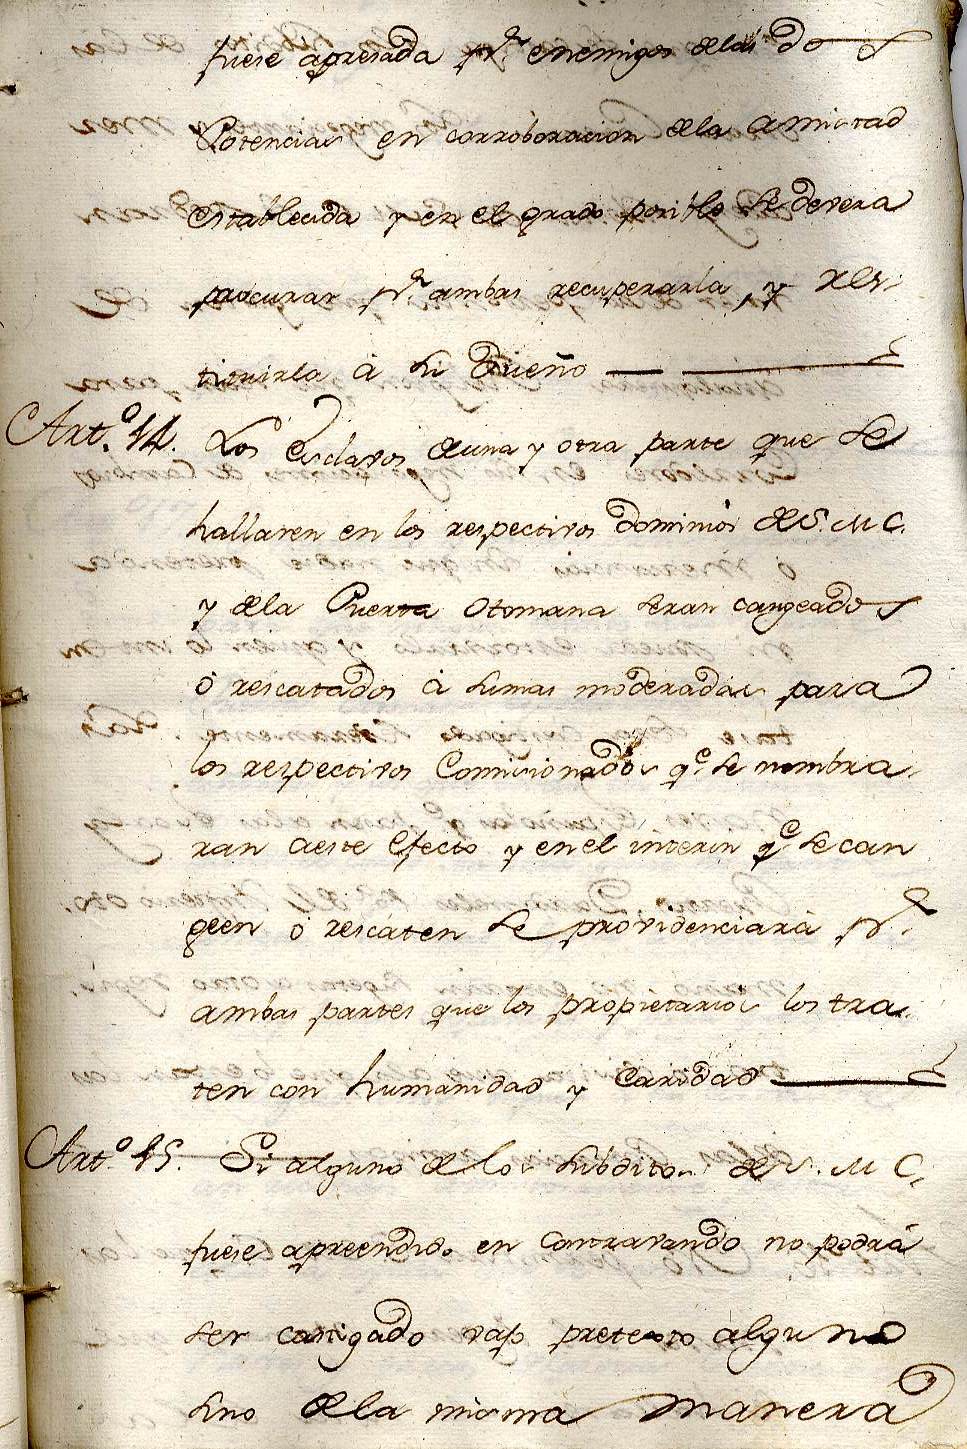 fuese apresada pr. enemigos delas dos
Potencias en corroboracion dela amistad
establecida y en el grado posible se devera
procurar pr. ambas recuperarla, y res-
tituirla à su Dueño
Arto. 14. Los Esclavos deuna y otra parte que se
hallaren en los respectivos dominios de S. M C.
y dela Puerta Otomana seran cangeados
ò rescatados à sumas moderadas para
los respectivos Comisionados qe. se nombra-
ran aeste efecto y enel interin qe. se can
geen ò rescaten se providenciarà pr.
ambas partes que los propietarios los tra-
ten con humanidad y caridad
Arto. 15. Si alguno de los subditos de S. M C.
fuese apreendido en contravando no podrà
ser castigado vajo pretexto alguno
sino dela misma manera